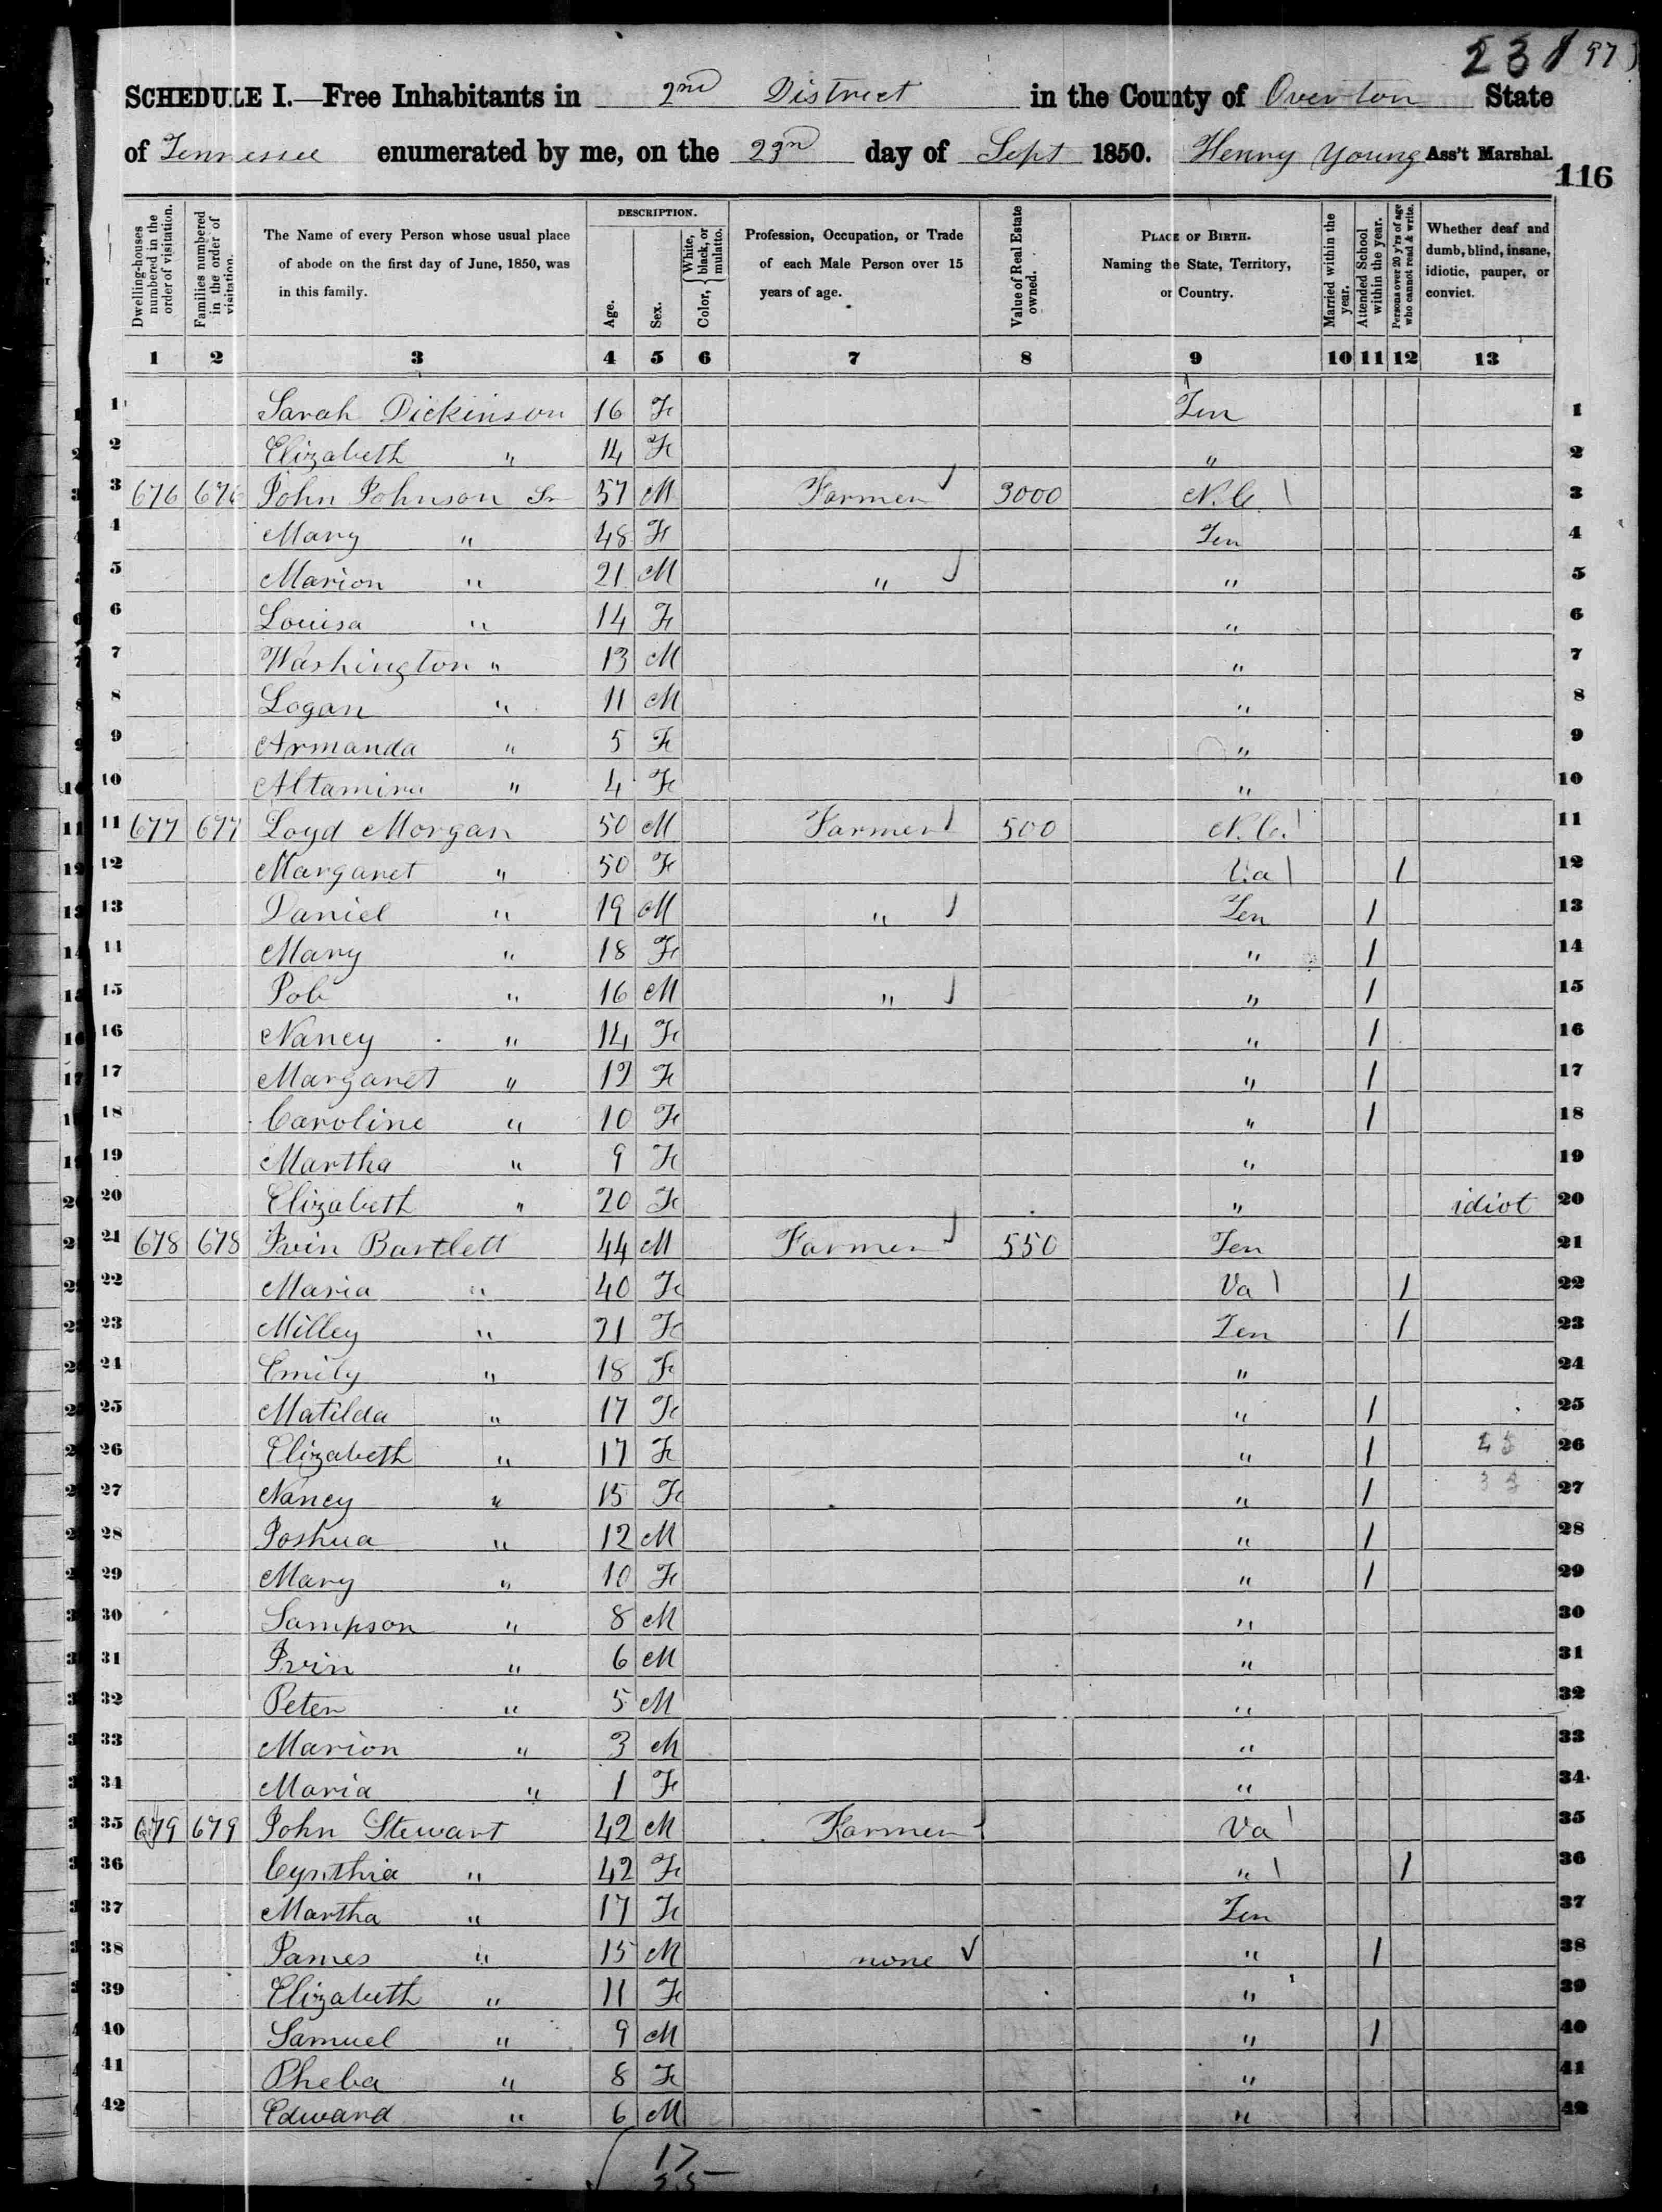 231 97
SCHEDULE I.—Free Inhabitants in 2nd District in the County of Overton State
of Tennessee enumerated by me, on the 23rd day of Sept 1850. Henry Young Ass't Marshal.
116
Dwelling-houses numbered in the order of visitation.
Families numbered in the order of visitation.
The Name of every Person whose usual place of abode on the first day of June, 1850, was in this family.
DESCRIPTION.
Age.
Sex.
Color, { White, black, or mulatto.
Profession, Occupation, or Trade of each Male Person over 15 years of age.
Value of Real Estate owned.
PLACE OF BIRTH. Naming the State, Territory, or Country.
Married within the year.
Attended School within the year.
Persons over 20 y'rs of age who cannot read & write.
Whether deaf and dumb, blind, insane, idiotic, pauper, or convict.
1 2 3 4 5 6 7 8 9 10 11 12 13
1 Sarah Dickinson 16 F Ten 1
2 Elizabeth " 14 F " 2
3 676 676 John Johnson Sr 57 M Farmer 3000 N.C. 3
4 Mary " 48 F Ten 4
5 Marion " 21 M " " 5
6 Louisa " 14 F " 6
7 Washington " 13 M " 7
8 Logan " 11 M " 8
9 Armanda " 5 F " 9
10 Altamira " 4 F " 10
11 677 677 Loyd Morgan 50 M Farmer 500 N.C. 11
12 Margaret " 50 F Va 1 12
13 Daniel " 19 M " Ten 1 13
14 Mary " 18 F " 1 14
15 Job " 16 M " " 1 15
16 Nancy " 14 F " 1 16
17 Margaret " 12 F " 1 17
18 Caroline " 10 F " 1 18
19 Martha " 9 F " 19
20 Elizabeth " 20 F " idiot 20
21 678 678 Irvin Bartlett 44 M Farmer 550 Ten 21
22 Maria " 40 F Va 1 22
23 Milley " 21 F Ten 1 23
24 Emily " 18 F " 24
25 Matilda " 17 F " 1 25
26 Elizabeth " 17 F " 1 26
27 Nancy " 15 F " 1 27
28 Joshua " 12 M " 1 28
29 Mary " 10 F " 1 29
30 Sampson " 8 M " 30
31 Irvin " 6 M " 31
32 Peter " 5 M " 32
33 Marion " 3 M " 33
34 Maria " 1 F " 34
35 679 679 John Stewart 42 M Farmer Va 35
36 Cynthia " 42 F " 1 36
37 Martha " 17 F Ten 37
38 James " 15 M none " 1 38
39 Elizabeth " 11 F " 39
40 Samuel " 9 M " 1 40
41 Pheba " 8 F " 41
42 Edward " 6 M " 42
17
25